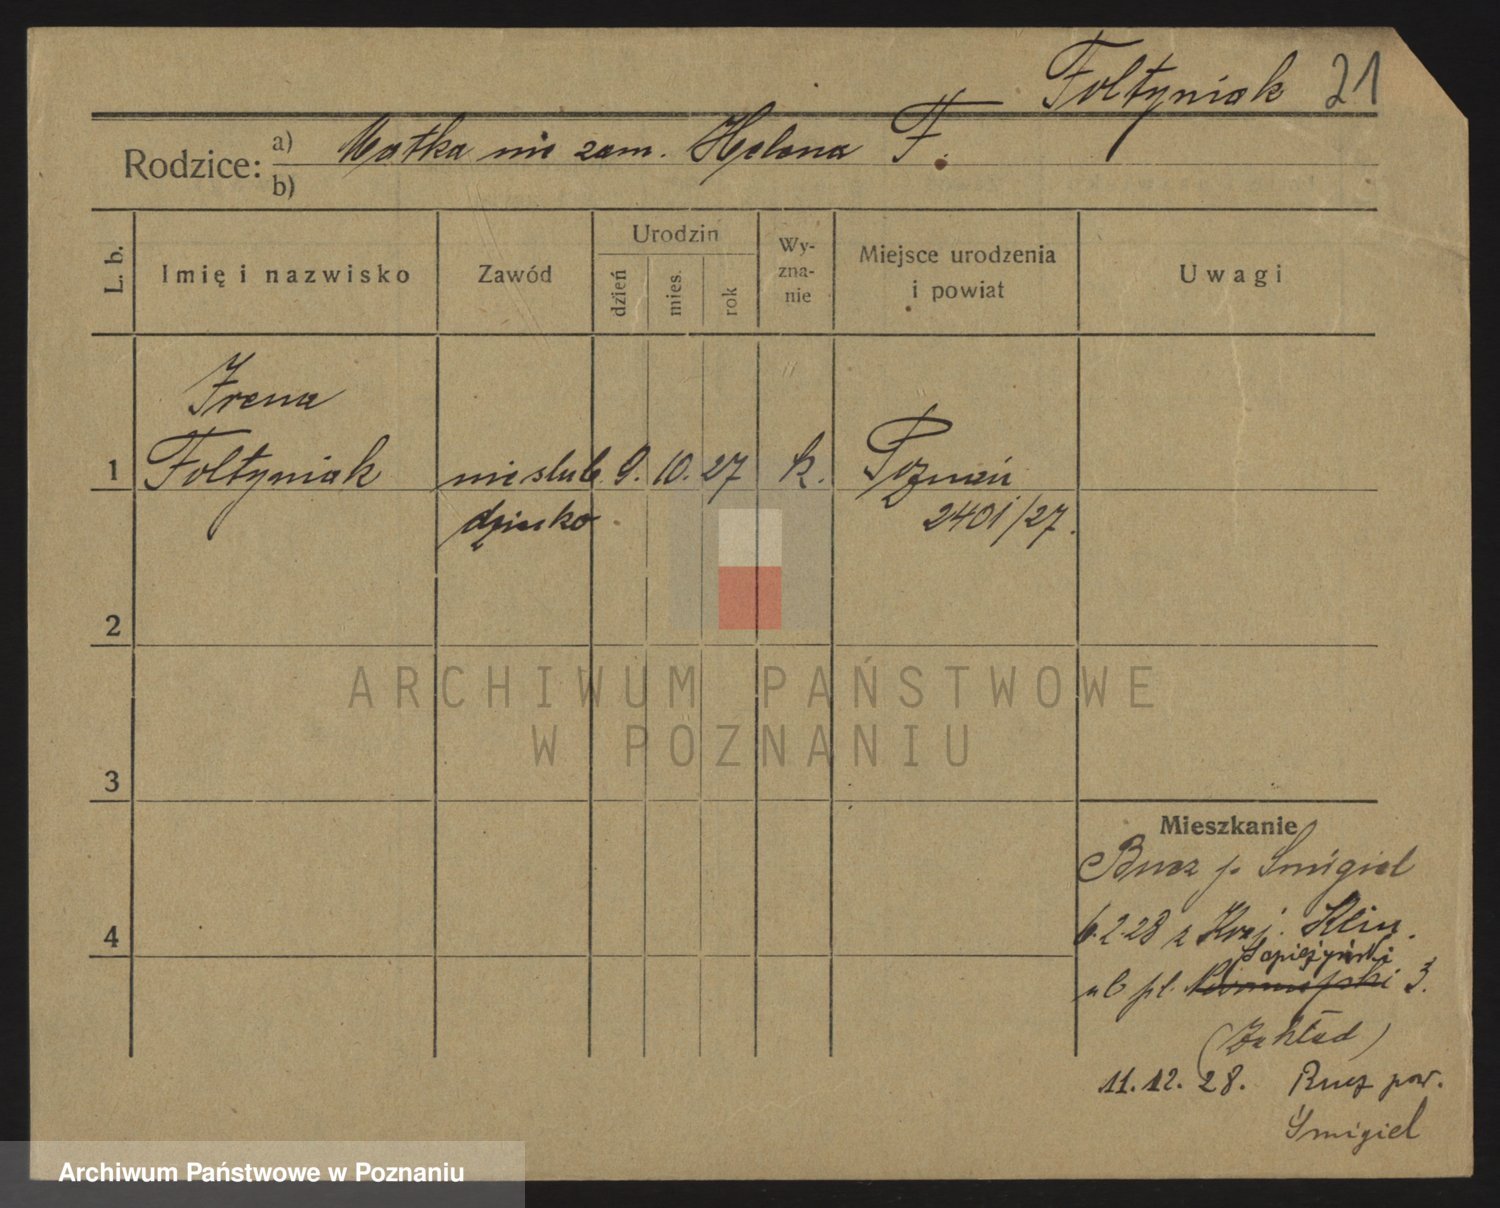 Fołtyniak 21
Rodzice: a) Matka nie zam. Helena F.
b)
L. b. Imię i nazwisko Zawód Urodzin dzień mies. rok Wy-zna-nie Miejsce urodzenia i powiat Uwagi
Irena
1 Fołtyniak nieślub. 9. 10. 27 k. Poznań
dziecko 2401/27.
2
ARCHIWUM PAŃSTWOWE
W POZNANIU
3
Mieszkanie
Bucz p. Śmigiel
4 6.2.28 z Kraj. Klin.
Sapieżyński
ub pl. 3.
(Zakład)
11.12.28. Bucz pow.
Śmigiel
Archiwum Państwowe w Poznaniu